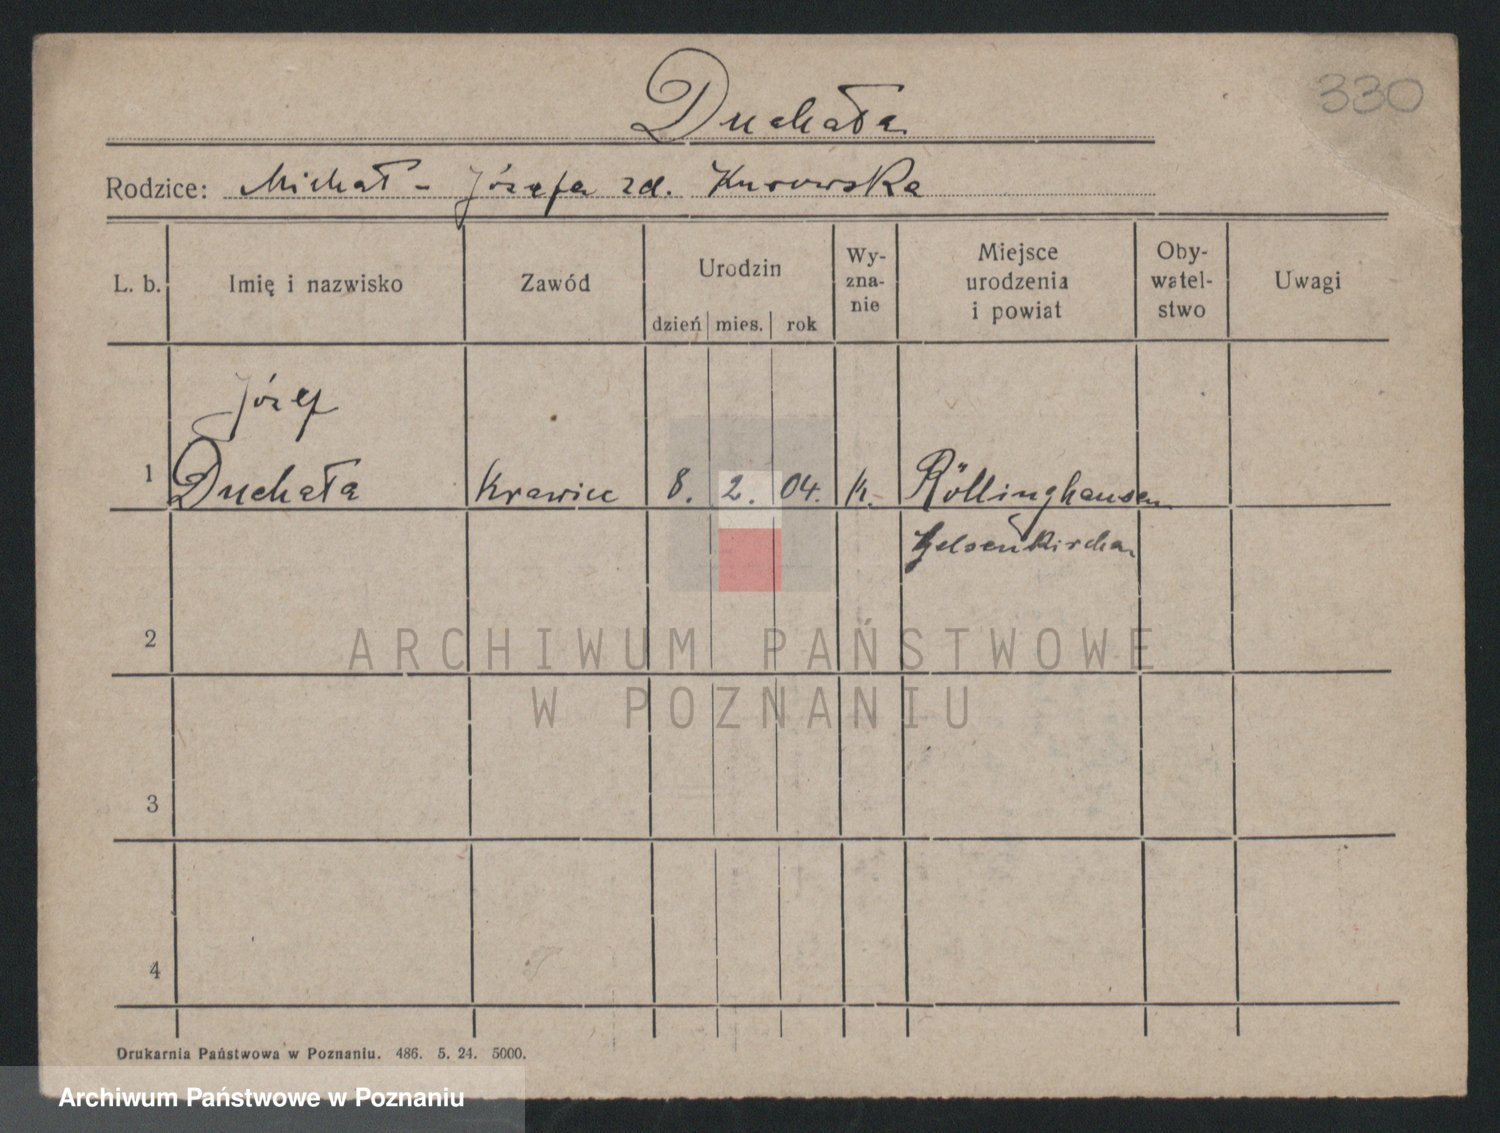 330
Duchała
Rodzice: Michał - Józefa zd. Kurowska
L. b. Imię i nazwisko Zawód Urodzin dzień mies. rok Wy-zna-nie Miejsce urodzenia i powiat Oby-watel-stwo Uwagi
Józef
1 Duchała Krawiec 8. 2. 04. k. Röllinghausen
Gelsenkirchen
2
ARCHIWUM PAŃSTWOWE
W POZNANIU
3
4
Drukarnia Państwowa w Poznaniu. 486. 5. 24. 5000.
Archiwum Państwowe w Poznaniu